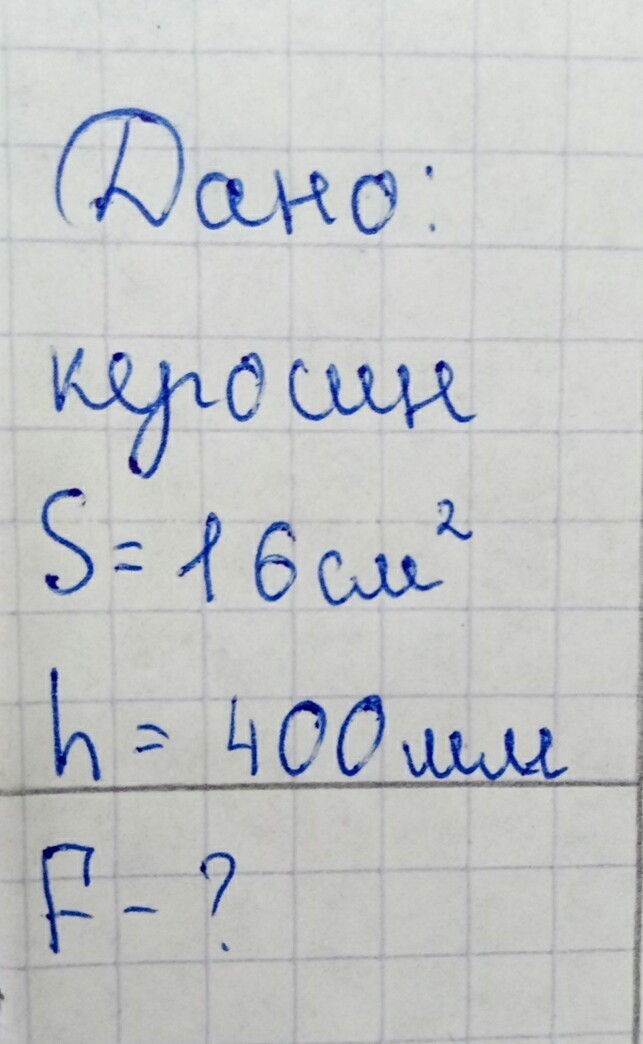 Дано:
керосин
S = 16 см²
h = 400 мм
F - ?